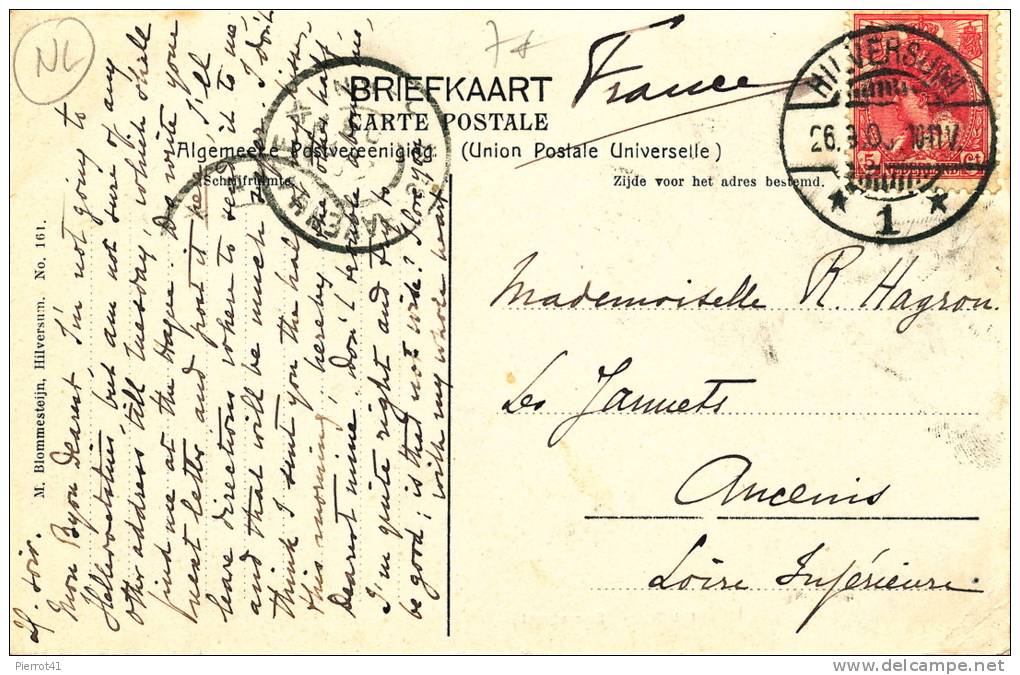 NL
7
France
BRIEFKAART
CARTE POSTALE
Algemeene Postvereeniging. (Union Postale Universelle)
Schrijfruimte.
Zijde voor het adres bestemd.
HILVERSUM
26.3.0 10-11V.
1
5 Ct.
NEDERLAND
Mademoiselle R. Hagron.
Les Jannets
Ancenis
Loire Inférieure.
M. Blommesteijn, Hilversum. No. 161.
soir.
Mon Byou dearest I'm not going to
Hellevoetsluis, but am not sure of any
other address till Tuesday, which shall
find me at the Hague. Do write your
next letter and post it I'll
leave directions where to send it to me
and that will be much I don't
think I sent you the half
this morning, hereby
Dearest mine. Don't
I'm quite right and try to
be good; is that not wise? I love you
with my whole heart
Pierrot41
delcampe.net